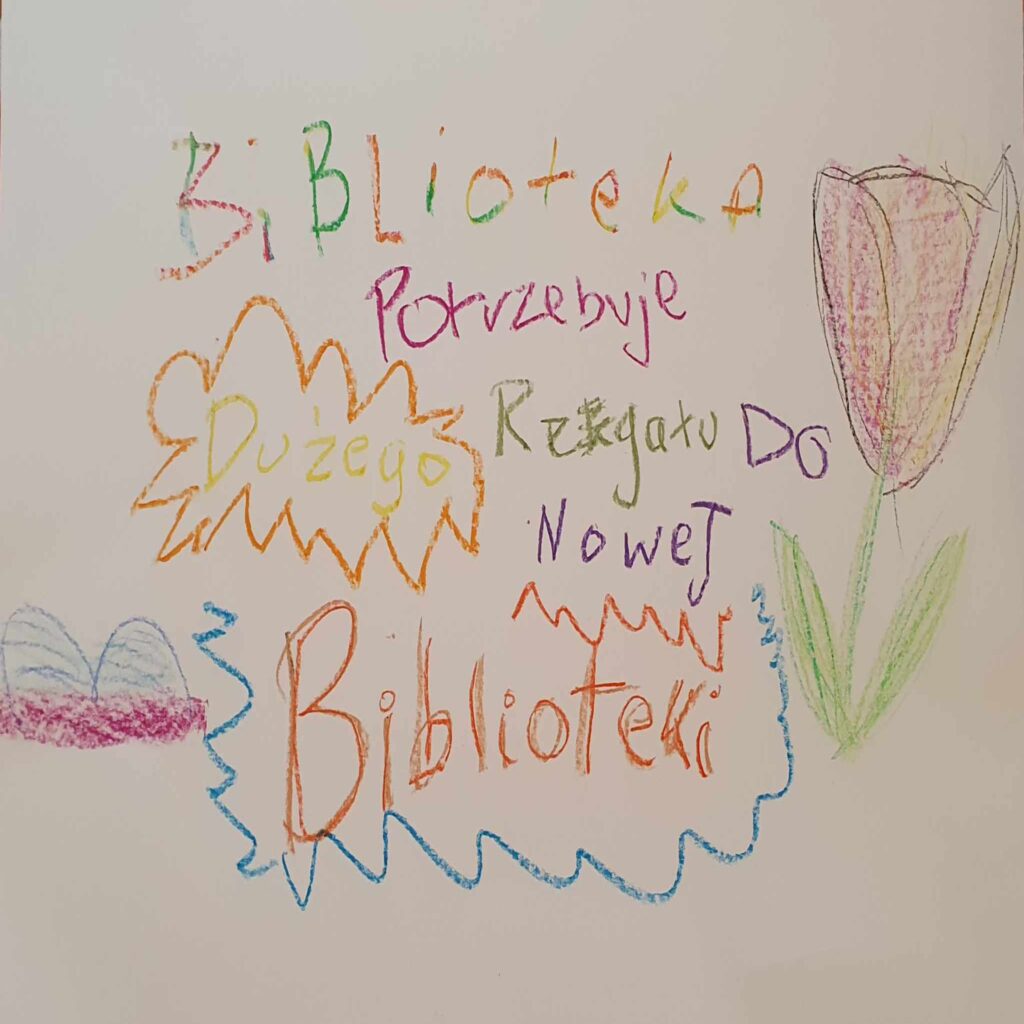 BiBLiotekA
Potrzebuje
Dużego Regału Do
NoweJ
Biblioteki